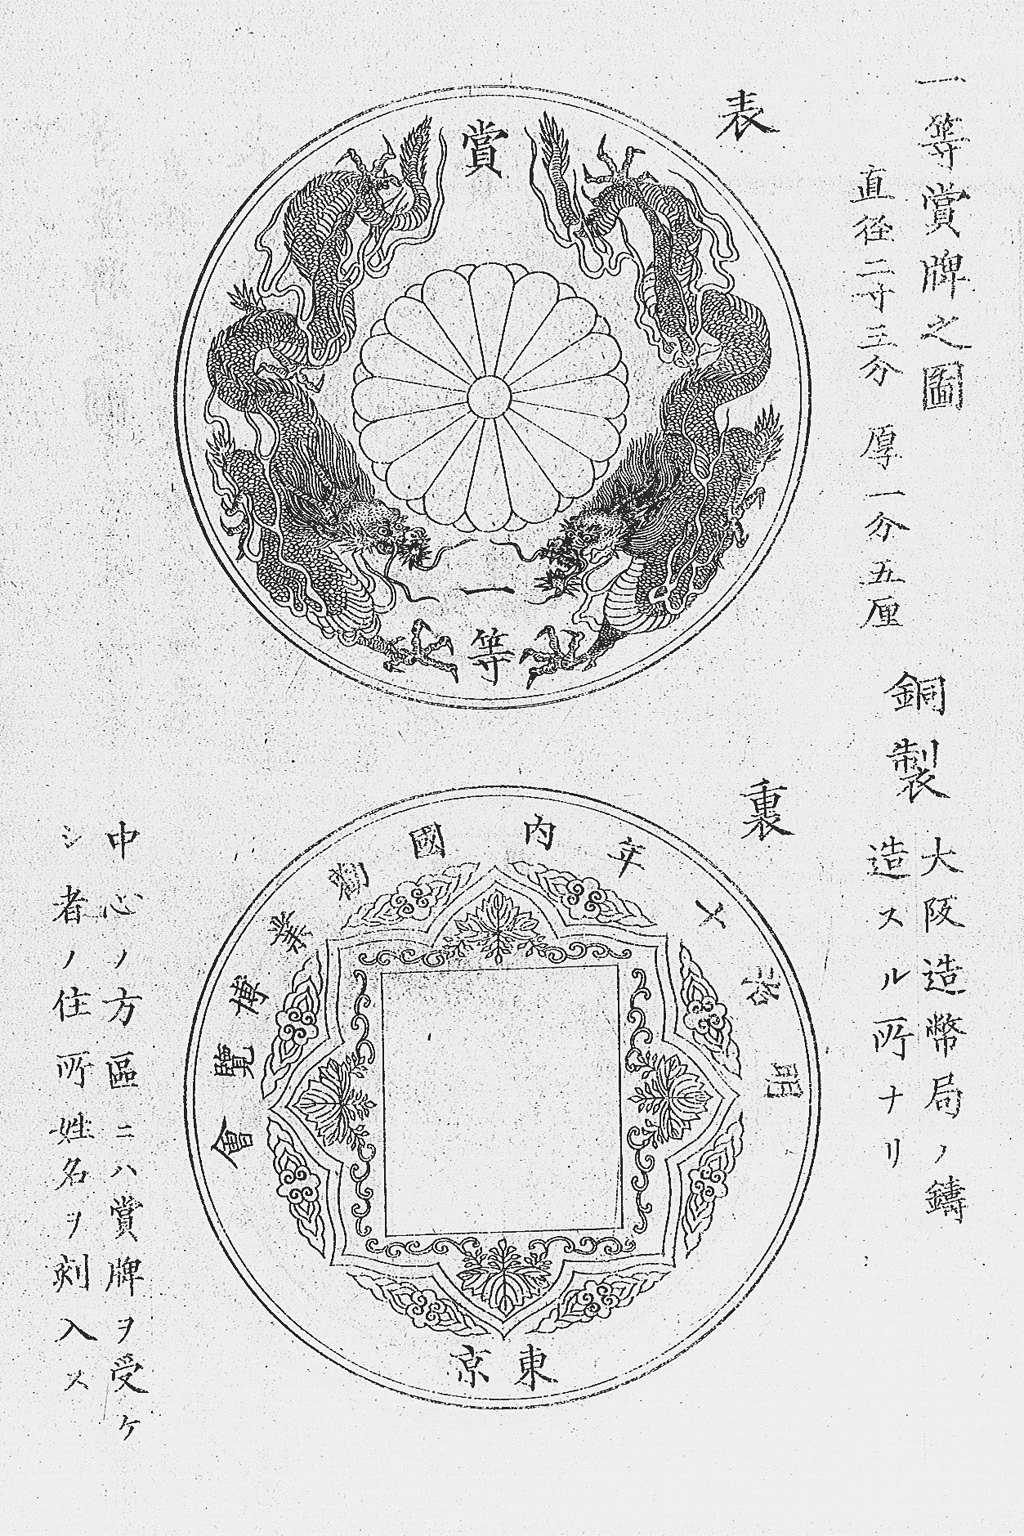 一等賞牌之圖
直径二寸三分 厚一分五厘
銅製
大阪造幣局ノ鑄
造スル所ナリ
表
賞
一等
裏
明治十年内國勸業博覽會
東京
中心ノ方區ニハ賞牌ヲ受ケ
シ者ノ住所姓名ヲ刻入ス